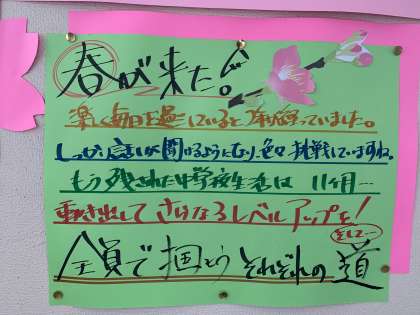 春が来た。
楽しく毎日を過していると 春になっていました。
しっかり意見が聞けるようになり、色々 挑戦していますね。
もう残された中学校生活は 11ヶ月…
動き出して さらなるレベルアップを!
そして…
全員で 掴とう それぞれの 道